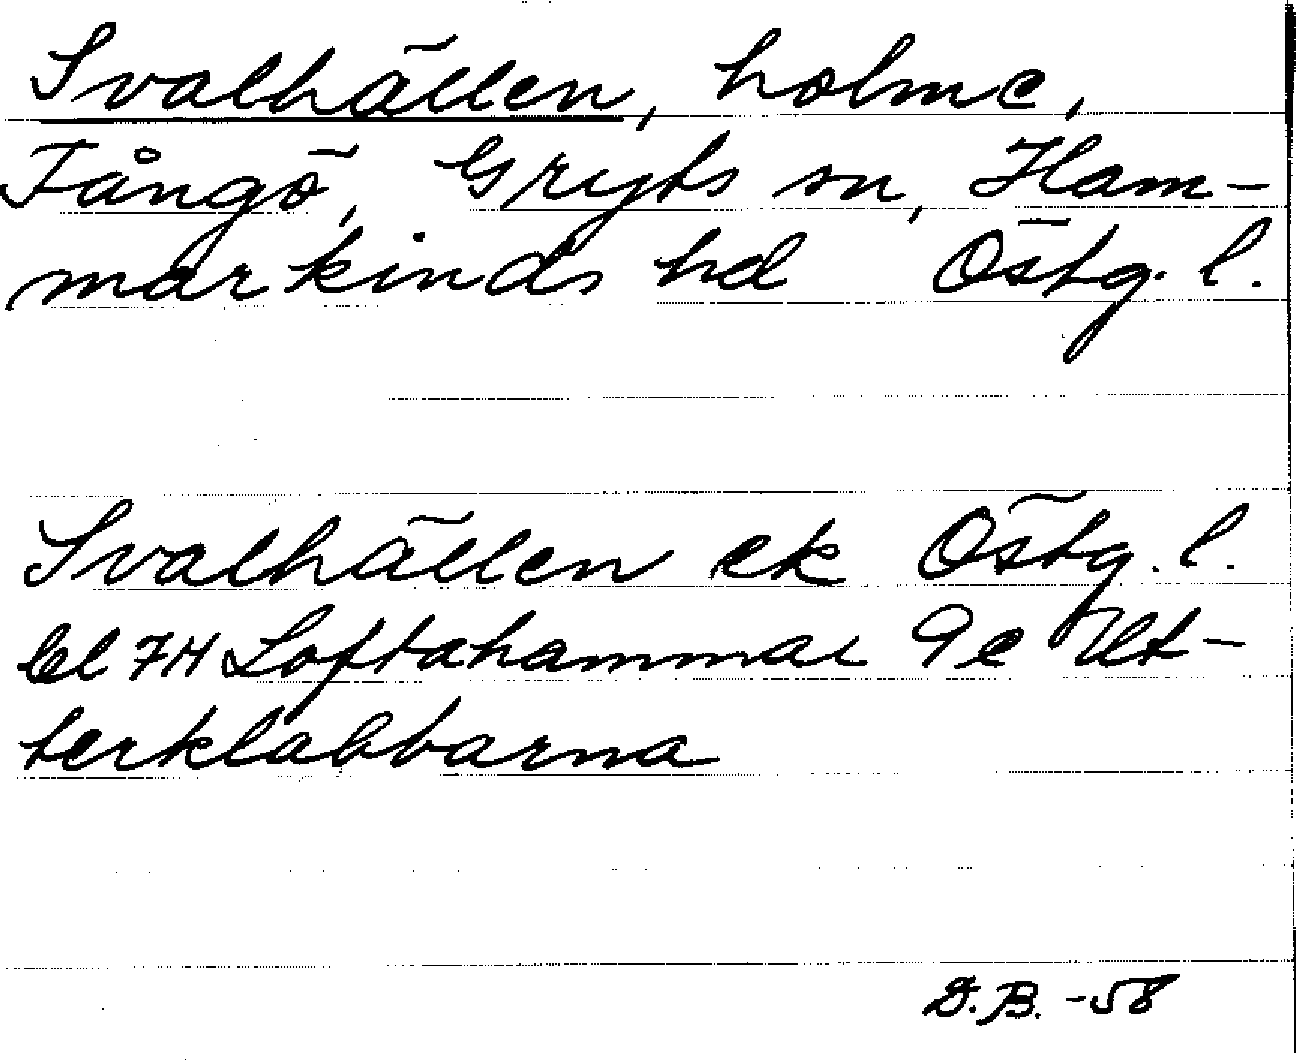 Svalhällen, holme,
Fångö, Gryts sn, Ham-
markinds hd Östg. l.
Svalhällen ek Östg. l.
bl 7H Loftahammar 9e Ut-
terklabbarna
D.B. -58